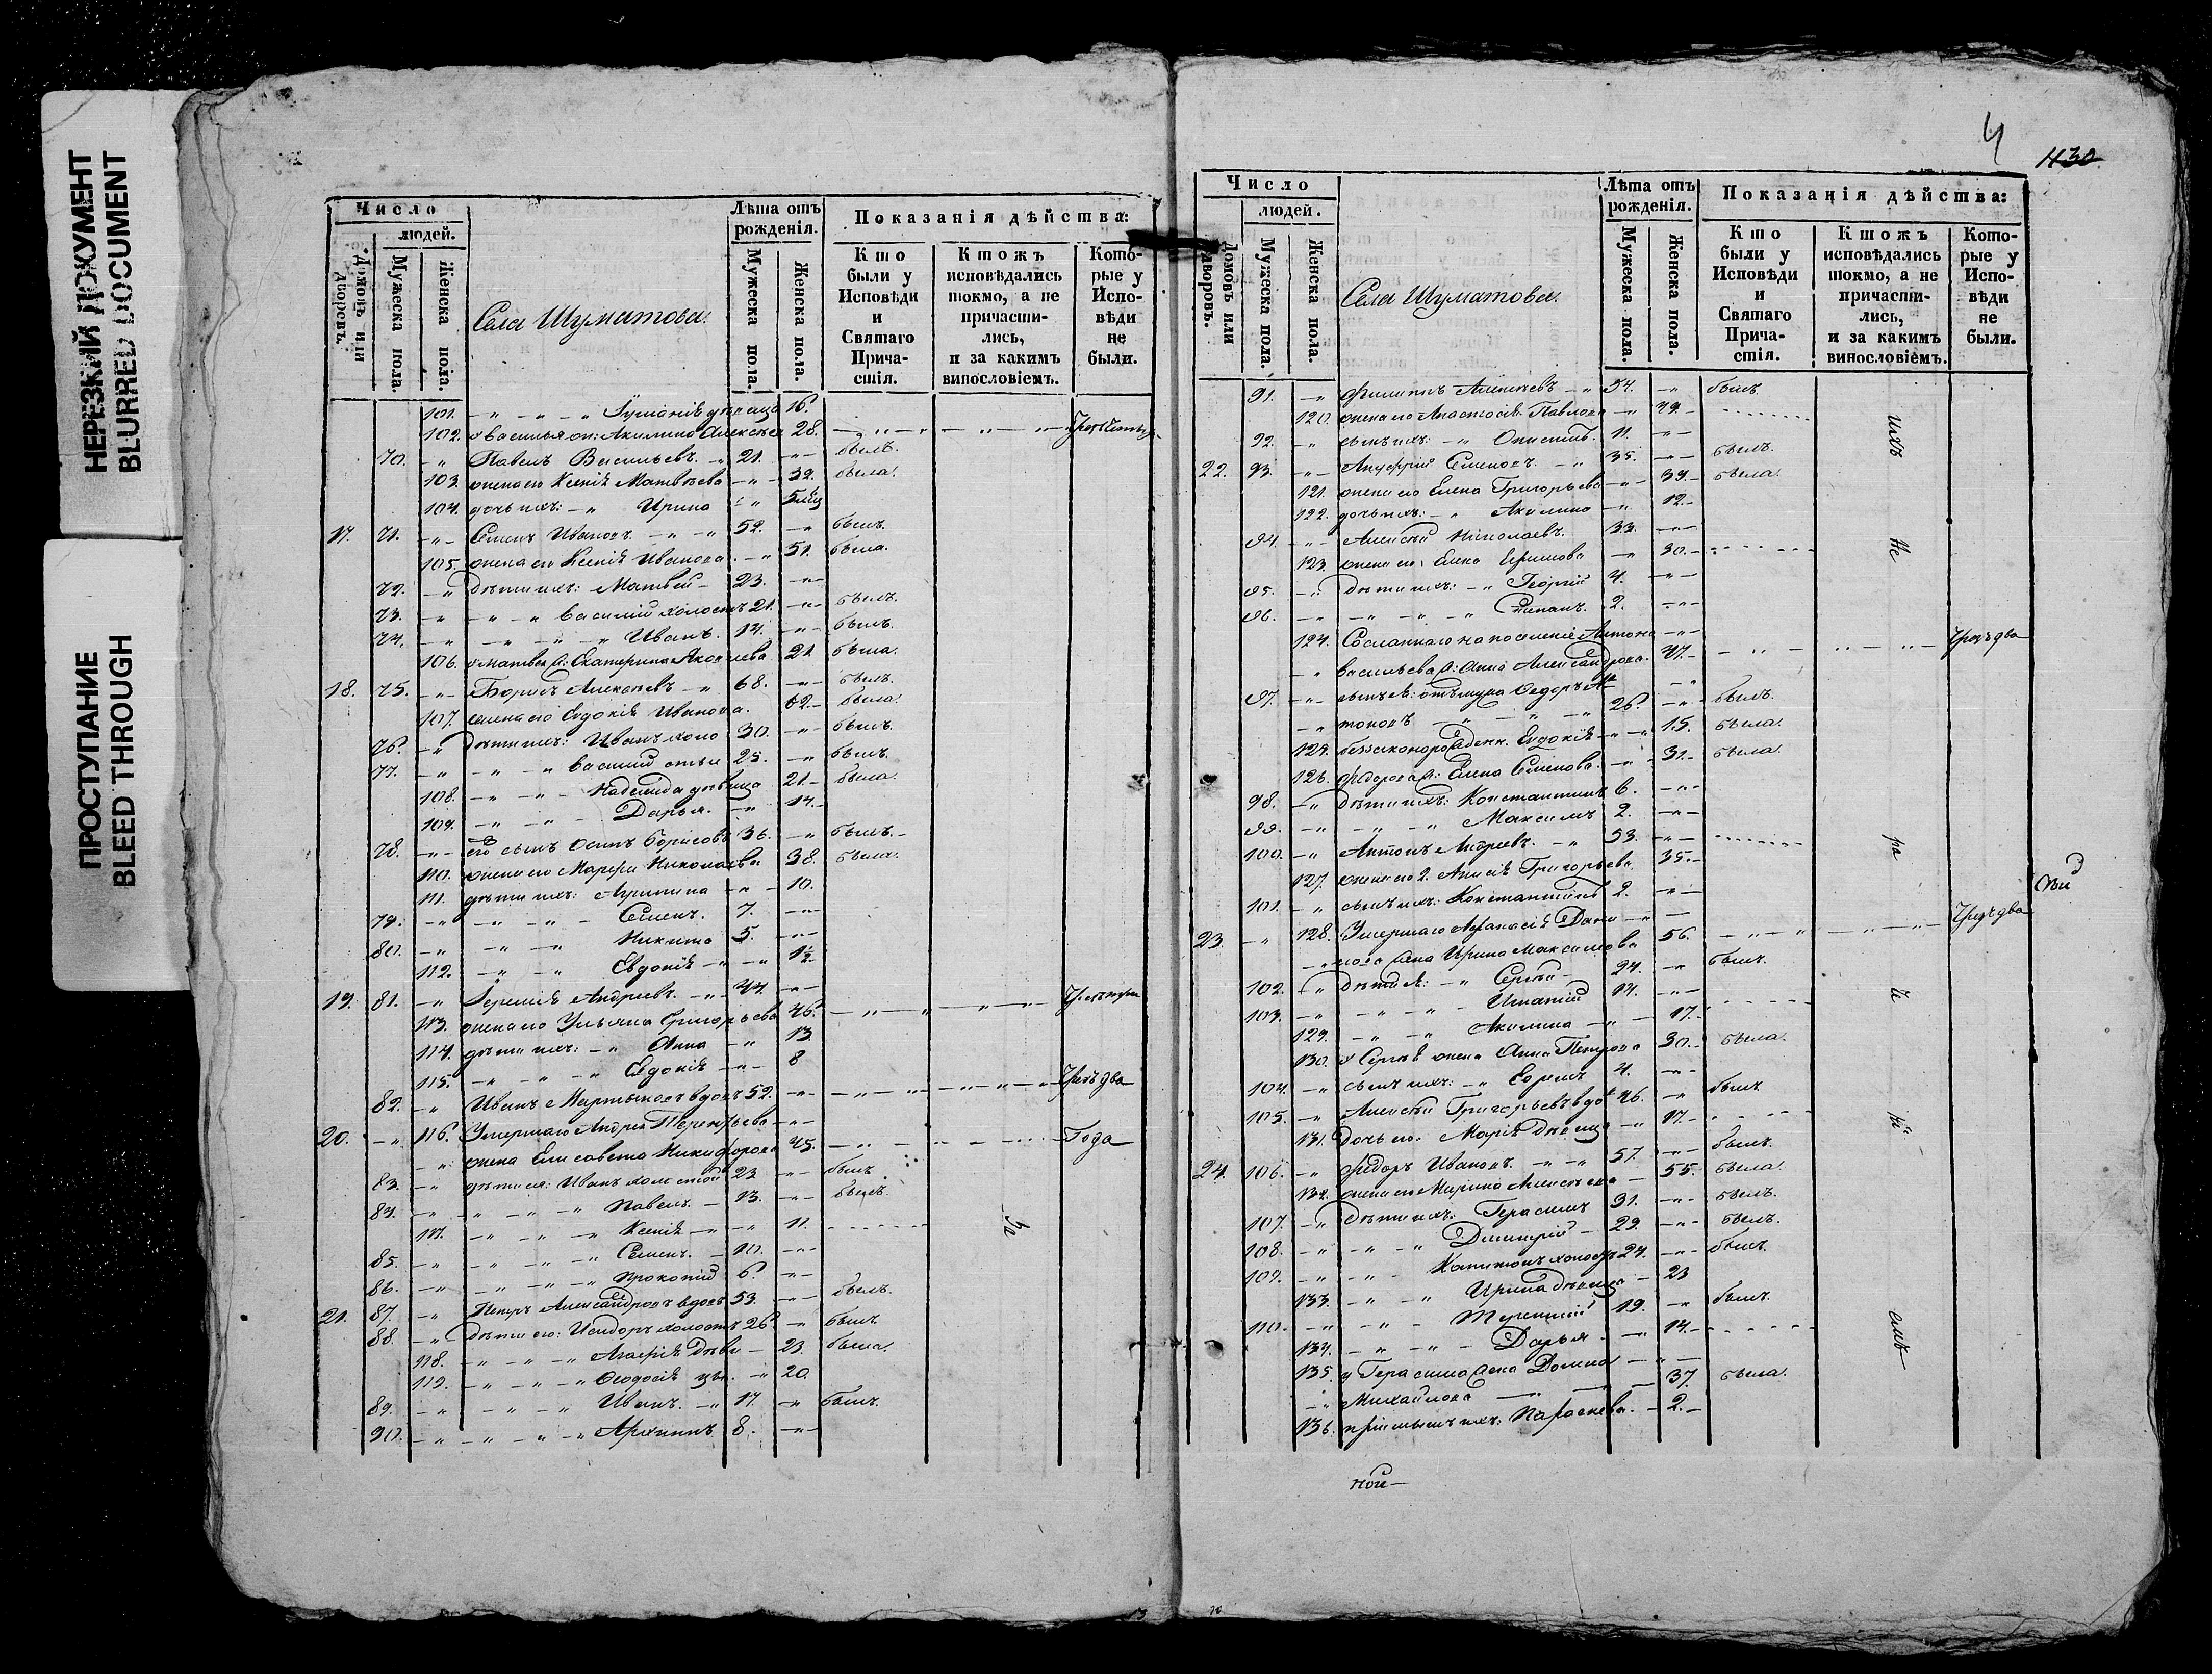 НЕРЕЗКИЙ ДОКУМЕНТ
BLURRED DOCUMENT
ПРОСТУПАНИЕ
BLEED THROUGH
Число
людей.
Домовъ или дворовъ.
Мужеска пола.
Женска пола.
Села Шуматова.
Лѣта отъ рожденія.
Мужеска пола.
Женска пола.
Показанія дѣйства:
Кто были у Исповѣди и Святаго Причастія.
Ктожъ исповѣдались токмо, а не причастились, и за какимъ винословіемъ.
Которые у Исповѣди не были.
101. девица 16.
102. Василья Акилина Алексѣева 28.
70. Павелъ Васильевъ. 21. былъ.
103. жена его Ксенія Матвѣева 32. была.
104. дочь ихъ: Ирина
17. 71. Семенъ Ивановъ. 52. былъ.
105. жена его Ксенія Иванова. 51. была.
72. дѣти ихъ: Матвей 23.
73. Василий холостъ 21. былъ.
74. Иванъ. 14. былъ.
106. у Матвея ж: Екатерина Яковлева 21. была.
18. 75. Борисъ Алексѣевъ 68. былъ.
107. жена его Евдокія Иванова. 62. была.
76. дѣти ихъ: Иванъ холо 30. былъ.
77. Василий 25. былъ.
108. Надежда дѣвица 21. была.
109. Дарья. 14.
78. его сынъ Осипъ Борисовъ 36. былъ.
110. жена его Марфа Николаева 38. была.
111. дѣти ихъ: Агрипина 10.
79. Семенъ. 7.
80. Никита 5.
112. Евдокія 1½
19. 81. Еремій Андреевъ. 44.
113. жена его Ульяна Григорьева 46.
114. дѣти ихъ: Анна 13.
115. Евдокія 8
82. Иванъ Мартыновъ вдовъ 52. Чрезъ два
20. 116. Умершаго Андрея Терентьева
жена Елисавета Никифорова 45. Года
83. дѣти ея: Иванъ холостой 23. былъ.
84. Павелъ. 13. былъ.
117. Ксенія 11.
85. Семенъ. 10.
86. Прокопій 6.
21. 87. Петръ Александровъ вдовъ 53. былъ.
88. дѣти его: Исидоръ холостъ 26. былъ.
118. Агафія Дѣви 23. была.
119. Ѳеодосія 20.
89. Иванъ. 17. былъ.
90. Архипъ 8.
За
4
430
Число
людей.
Домовъ или дворовъ.
Мужеска пола.
Женска пола.
Села Шуматова.
Лѣта отъ рожденія.
Мужеска пола.
Женска пола.
Показанія дѣйства:
Кто были у Исповѣди и Святаго Причастія.
Ктожъ исповѣдались токмо, а не причастились, и за какимъ винословіемъ.
Которые у Исповѣди не были.
91. Филиппъ Алексѣевъ 54. былъ.
120. жена его Анастасія Павлова 49.
92. сынъ ихъ: 11.
22. 93. Ануфрій Семеновъ 35. былъ.
121. жена его Елена Григорьева 39. была.
122. дочь ихъ: Акилина 12.
94. Алексѣй Николаевъ. 33.
123. жена его Елена Ефимова 30.
95. дѣти ихъ: Георгій 4.
96. Степанъ. 2.
124. Сосланнаго на поселеніе Антона
Васильева ж: Анна Александрова. 47. Чрезъ два
97. сынъ ея: отъ мужа Ѳедоръ Ан
тоновъ 26. былъ.
125. беззаконорожденн. Евдокія 15. была.
126. Ѳедорова ж: Елена Семенова. 31. была.
98. дѣти ихъ: Константинъ 6.
99. Максимъ 2.
100. Антонъ Андреевъ. 53.
127. жена его 2. Анисія Григорьева. 35.
101. сынъ ихъ: Константинъ 2.
23. 128. Умершаго Афанасія Дани
лова жена Ирина Максимова 56. Чрезъ два
102. дѣти ея: Сергѣй 24. былъ.
103. Игнатій 14.
129. Акилина 17.
130. у Сергѣя жена Анна Петрова 30. была.
104. сынъ ихъ: Ефремъ 4.
105. Алексѣй Григорьевъ вдов 46. былъ
131. Дочь его: Марія Дѣвица 17.
24. 106. Ѳедоръ Ивановъ. 57. былъ.
132. жена его Марина Алексѣева 55. была.
107. Дѣти ихъ: Герасимъ 31. былъ.
108. Димитрій 29. былъ.
109. Капитонъ холостъ 24. былъ.
133. Ирина дѣвица 23
110. Терентій 19. былъ.
134. Дарья 14.
135. у Герасима жена Домна
Михайлова 37. была.
136. пріемышъ ихъ: Параскева. 2.
ной
ихъ
Не
ра
че
ні
емъ